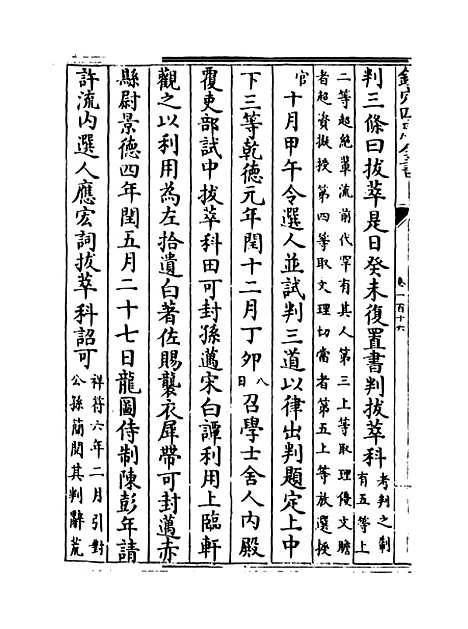 欽定四庫全書
卷一百十六
判三條曰拔萃是日癸未復置書判拔萃科考判之制有五等上
二等超絶輩流前代罕有其人第三上等取理優文贍
者超資擬授第四等取文理切當者第五上等放選授
官十月甲午令選人並試判三道以律出判題定上中
下三等乾德元年閏十二月丁卯八日召學士舍人内殿
覆吏部試中拔萃科田可封孫邁宋白譚利用上臨軒
觀之以利用為左拾遺白著佐賜襲衣犀帶可封邁赤
縣尉景德四年閏五月二十七日龍圖待制陳彭年請
許流内選人應宏詞拔萃科詔可祥符六年二月引對公孫簡閲其判辭荒